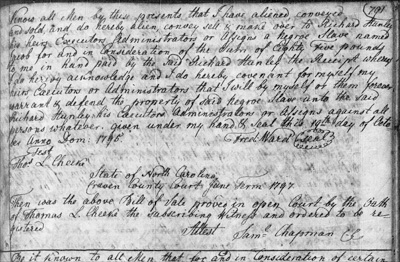 Know all Men by this presents that I have aliened conveyed
and sold and do hereby alien convey sell & make over to Richard Hunley
his heirs Executors Administrators or Assigns a negroe Slave named
for and in Consideration of the Sum of Eighty five pounds
to me in hand paid by the said Richard Hunley the Receipt whereof
I do hereby acknowledge and I do hereby covenant for myself my
heirs Executors or Administrators that I will by myself or them forever
warrant & defend the property of said negroe Slave unto the said
Richard Hunley his Executors Administrators or Assigns against all
persons whatever. given under my hand & Seal this 19th day of Octo
ber Anno Dom: 1795 Fred Ward Seal
Test
Thos. L. Cheeke
State of North Carolina
Craven County Court June Term 1797.
Then was the above Bill of Sale proved in open Court by the Oath
of Thomas L. Cheeke the Subscribing Witness and ordered to be re
gistered
Attest Saml. Chapman CC
Be it known to all Men that for and in Consideration of certain